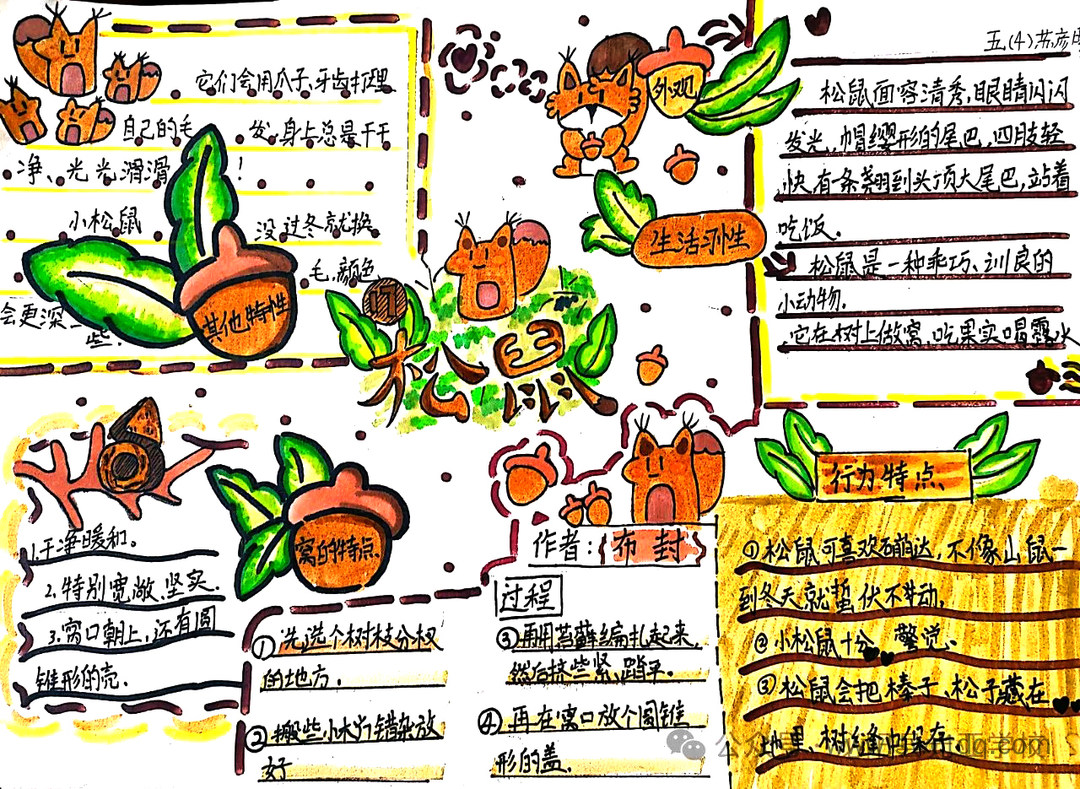 它们会用爪子、牙齿打理
自己的毛 发,身上总是干干
净、光光滑滑 !
小松鼠 没过冬就换
毛,颜色
会更深一些!
其他特性
17
松鼠
外观
生活习性
五(4)苏彦
松鼠面容清秀,眼睛闪闪
发光,帽缨形的尾巴,四肢轻
快,有条翘到头顶大尾巴,站着
吃饭。
松鼠是一种乖巧、训良的
小动物.
它在树上做窝,吃果实喝露水
窝的特点
1.干净暖和。
2.特别宽敞、坚实.
3.窝口朝上,还有圆
锥形的壳.
作者:{布封}
过程
①先选个树枝分杈
的地方.
②搬些小木片错杂放
好
③再用苔藓编扎起来,
然后挤些紧,踏平.
④再在窝口放个圆锥
形的盖.
行为特点
①松鼠可喜欢蹦达,不像山鼠一
到冬天就蛰伏不动,
②小松鼠十分 警觉.
③松鼠会把榛子、松子藏在
地里、树缝中保存